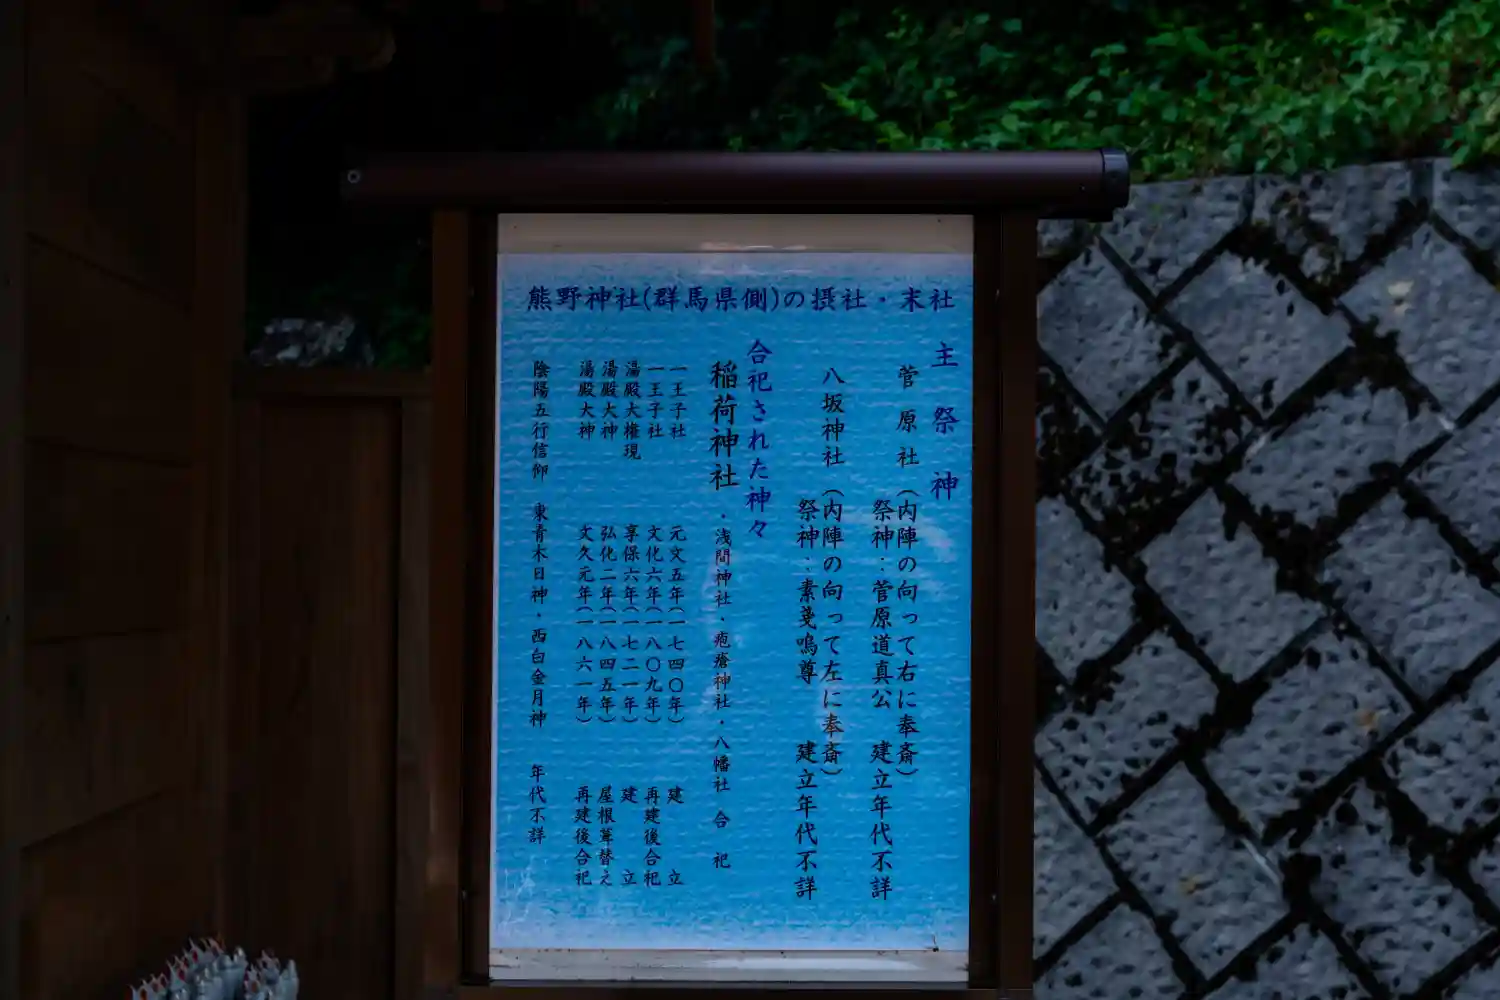 熊野神社(群馬県側)の摂社・末社
主祭神
菅原社(内陣の向って右に奉斎)
祭神:菅原道真公 建立年代不詳
八坂神社(内陣の向って左に奉斎)
祭神:素戔嗚尊 建立年代不詳
合祀された神々
稲荷神社・浅間神社・疱瘡神社・八幡社 合祀
一王子社 元文五年(一七四〇年) 建立
一王子社 文化六年(一八〇九年) 再建後合祀
湯殿大権現 享保六年(一七二一年) 建立
湯殿大神 弘化二年(一八四五年) 屋根葺替え
湯殿大神 文久元年(一八六一年) 再建後合祀
陰陽五行信仰 東青木日神・西白金月神 年代不詳